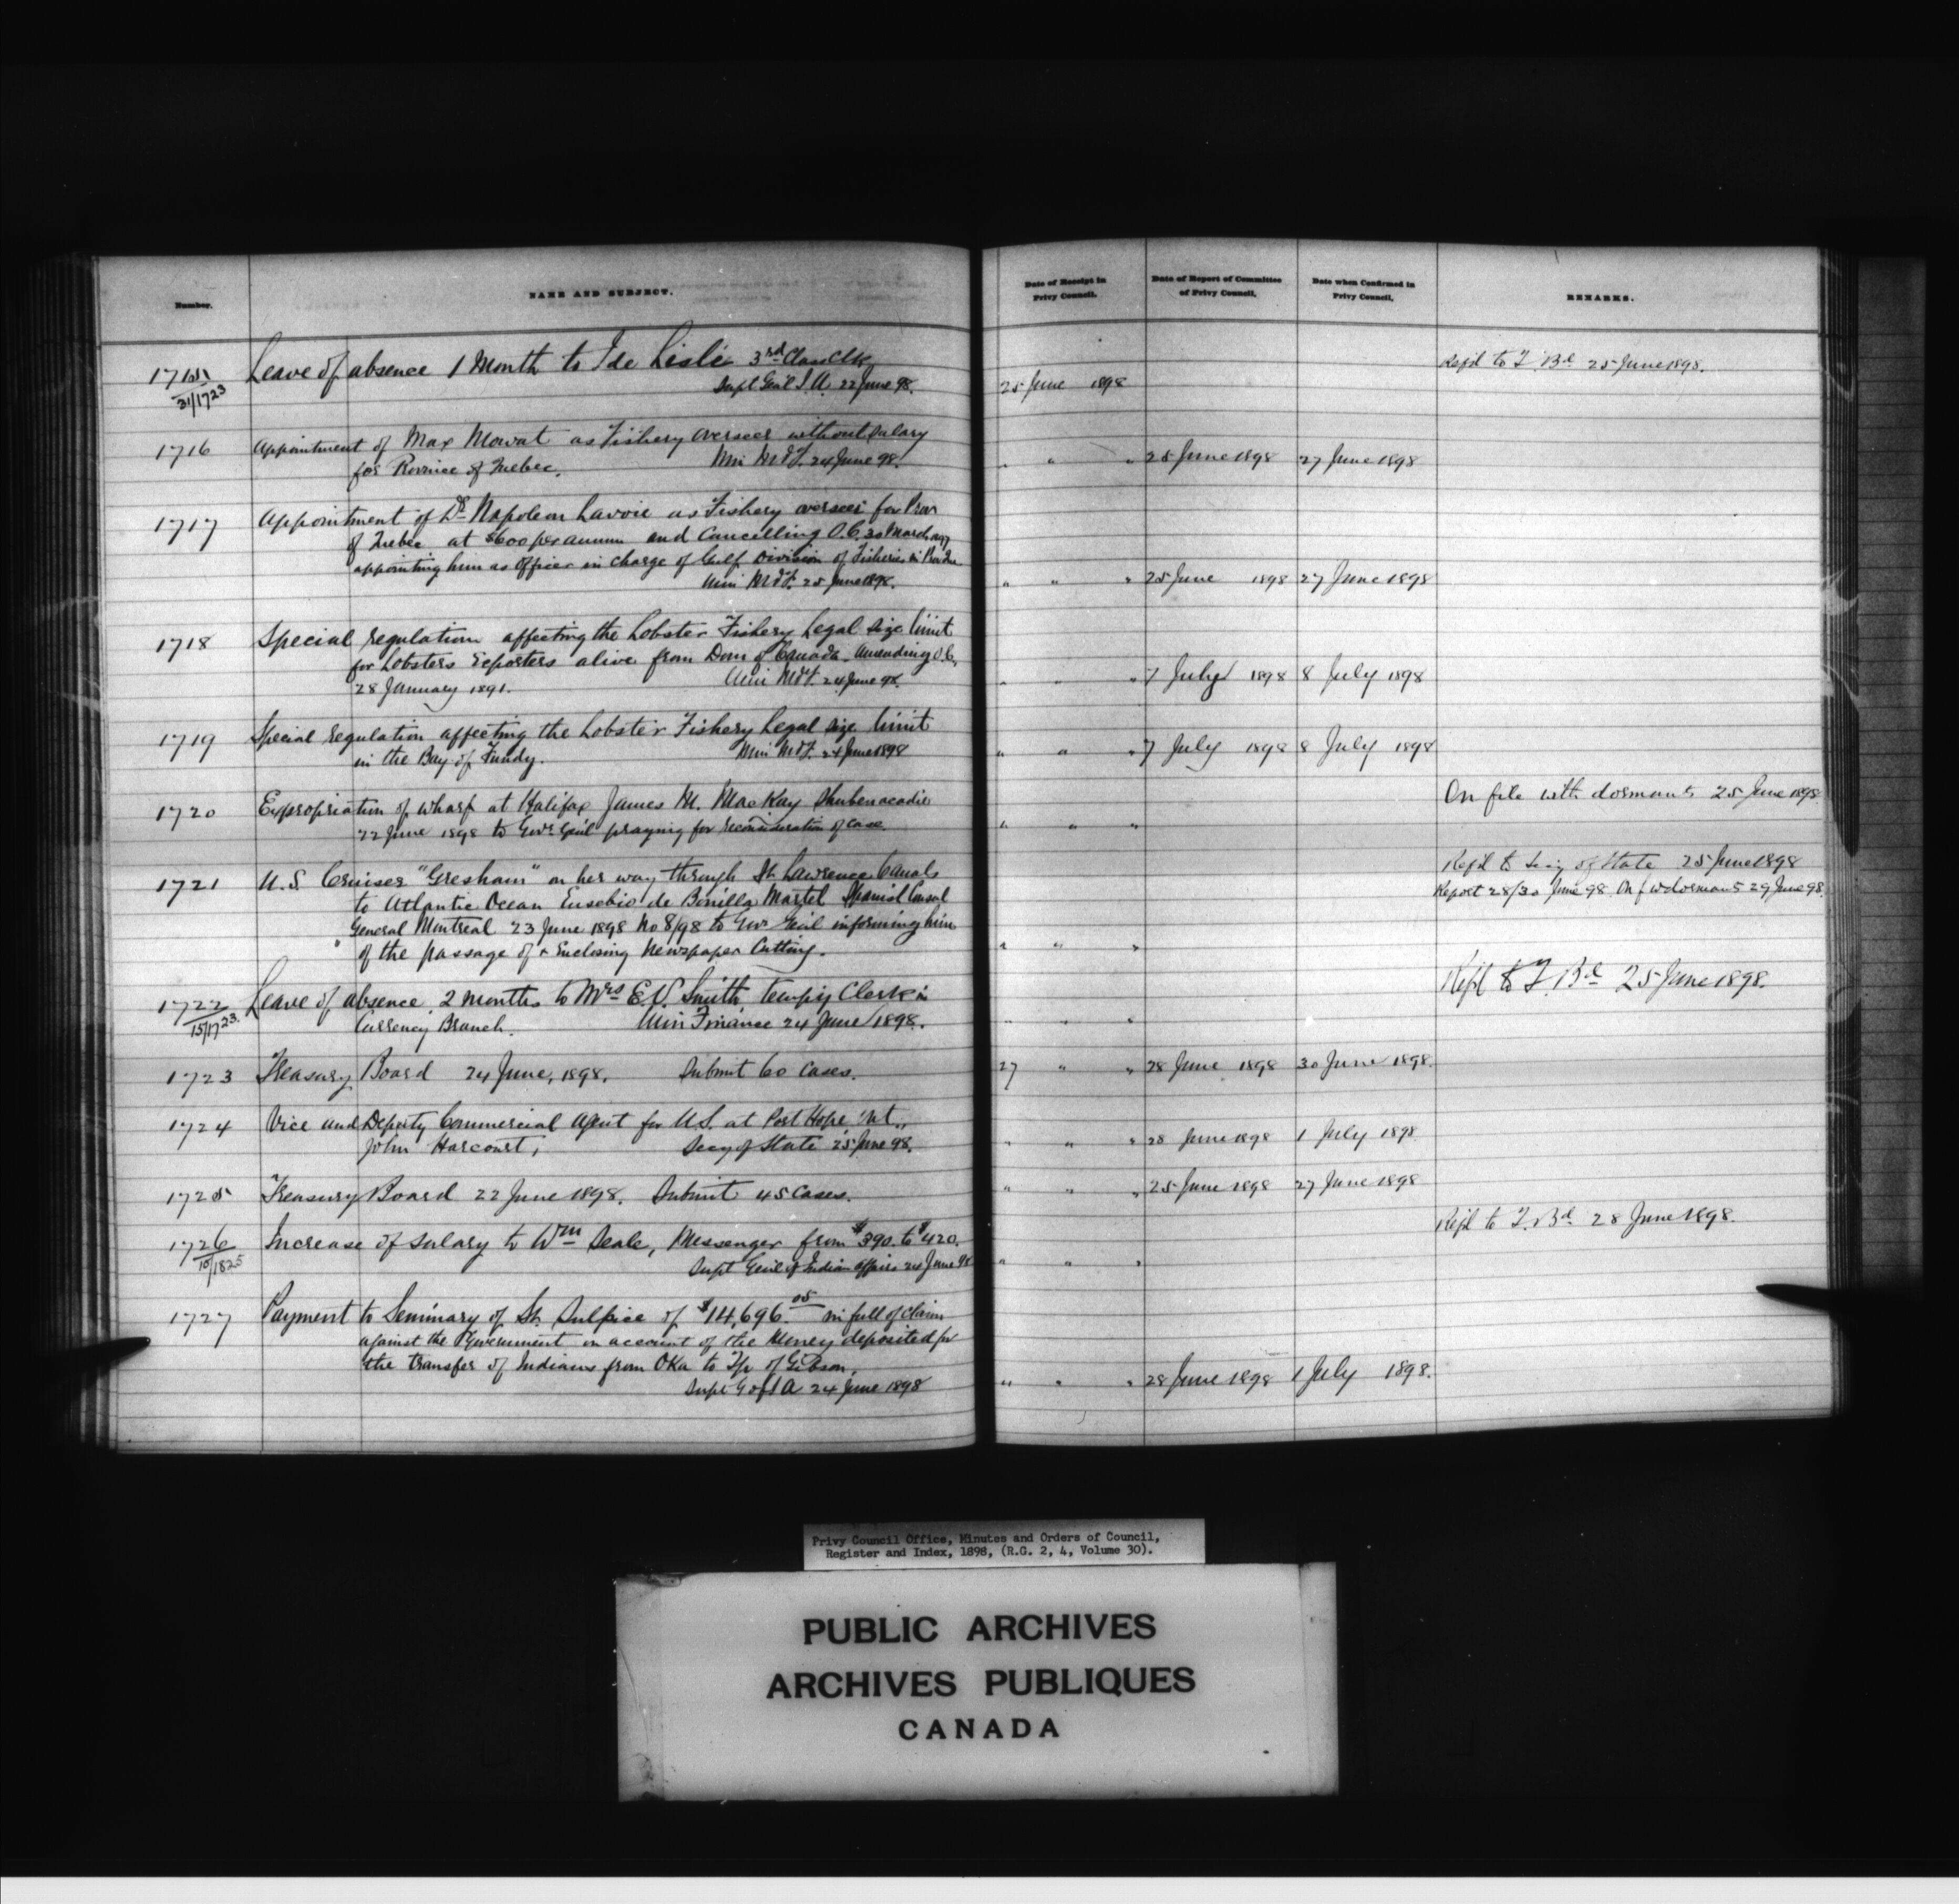 Number.
NAME AND SUBJECT.
Date of Receipt in Privy Council.
Date of Report of Committee of Privy Council.
Date when Confirmed in Privy Council.
REMARKS.
1715 Leave of absence 1 Month to J de Lisle 3rd Class Clk Refd to T. Bd 25 June 1898.
31/1723 Supt Genl I.A. 22 June 98. 25 June 1898
1716 Appointment of Max Mowat as Fishery Overseer without Salary
for Province of Quebec. Min M&F. 24 June 98. " " " 25 June 1898 27 June 1898
1717 Appointment of Dr Napoleon Lavoie as Fishery overseer for Prov
of Quebec at $600 per annum and Cancelling O.C. 30 March
appointing him as Officer in Charge of Gulf Division of Fisheries in Prov Que
Min M&F. 25 June 1898. " " " 25 June 1898 27 June 1898
1718 Special regulation affecting the Lobster Fishery Legal size limit
for Lobsters Exporters alive from Dom of Canada. Amending O.C.
28 January 1891. Min M&F. 24 June 98. " " " 7 July 1898 8 July 1898
1719 Special regulation affecting the Lobster Fishery Legal size limit
in the Bay of Fundy. Min M&F. 24 June 1898 " " " 7 July 1898 8 July 1898
1720 Expropriation of wharf at Halifax James M. MacKay Shubenacadie On file with dormants 25 June 1898
22 June 1898 to Govr Genl praying for reconsideration of case. " " "
1721 U.S. Cruiser "Gresham" on her way through St. Lawrence Canals Refd to Secy of State 25 June 1898
to Atlantic Ocean Eusebio de Bonilla Martel Spanish Consul Report 28/30 June 98. On f w dormants 29 June 98.
General Montreal 23 June 1898 No 8/98 to Gov Genl informing him
of the passage of & Enclosing Newspaper Cutting. " " "
1722 Leave of absence 2 months to Mrs E.V. Smith tempy Clerk in Refd to T. Bd 25 June 1898.
15/1723. Currency Branch. Min Finance 24 June 1898. " " "
1723 Treasury Board 24 June, 1898. Submit 60 Cases. 27 " " 28 June 1898 30 June 1898.
1724 Vice and Deputy Commercial Agent for U.S. at Port Hope, Ont.,
John Harcourt, Secy of State 25 June 98. " " " 28 June 1898 1 July 1898
1725 Treasury Board 22 June 1898. Submit 45 Cases. " " " 25 June 1898 27 June 1898
1726 Increase of Salary to Wm Seale, Messenger from $390. to $420. Refd to T. Bd 28 June 1898.
10/1825 Supt Genl of Indian Affairs 24 June 98 " " "
1727 Payment to Seminary of St. Sulpice of $14,696.05 in full of claim
against the Government on account of the Money deposited for
the transfer of Indians from Oka to Tp of Gibson,
Supt G of I A 24 June 1898 " " " 28 June 1898 1 July 1898.
Privy Council Office, Minutes and Orders of Council,
Register and Index, 1898, (R.G. 2, 4, Volume 30).
PUBLIC ARCHIVES
ARCHIVES PUBLIQUES
CANADA